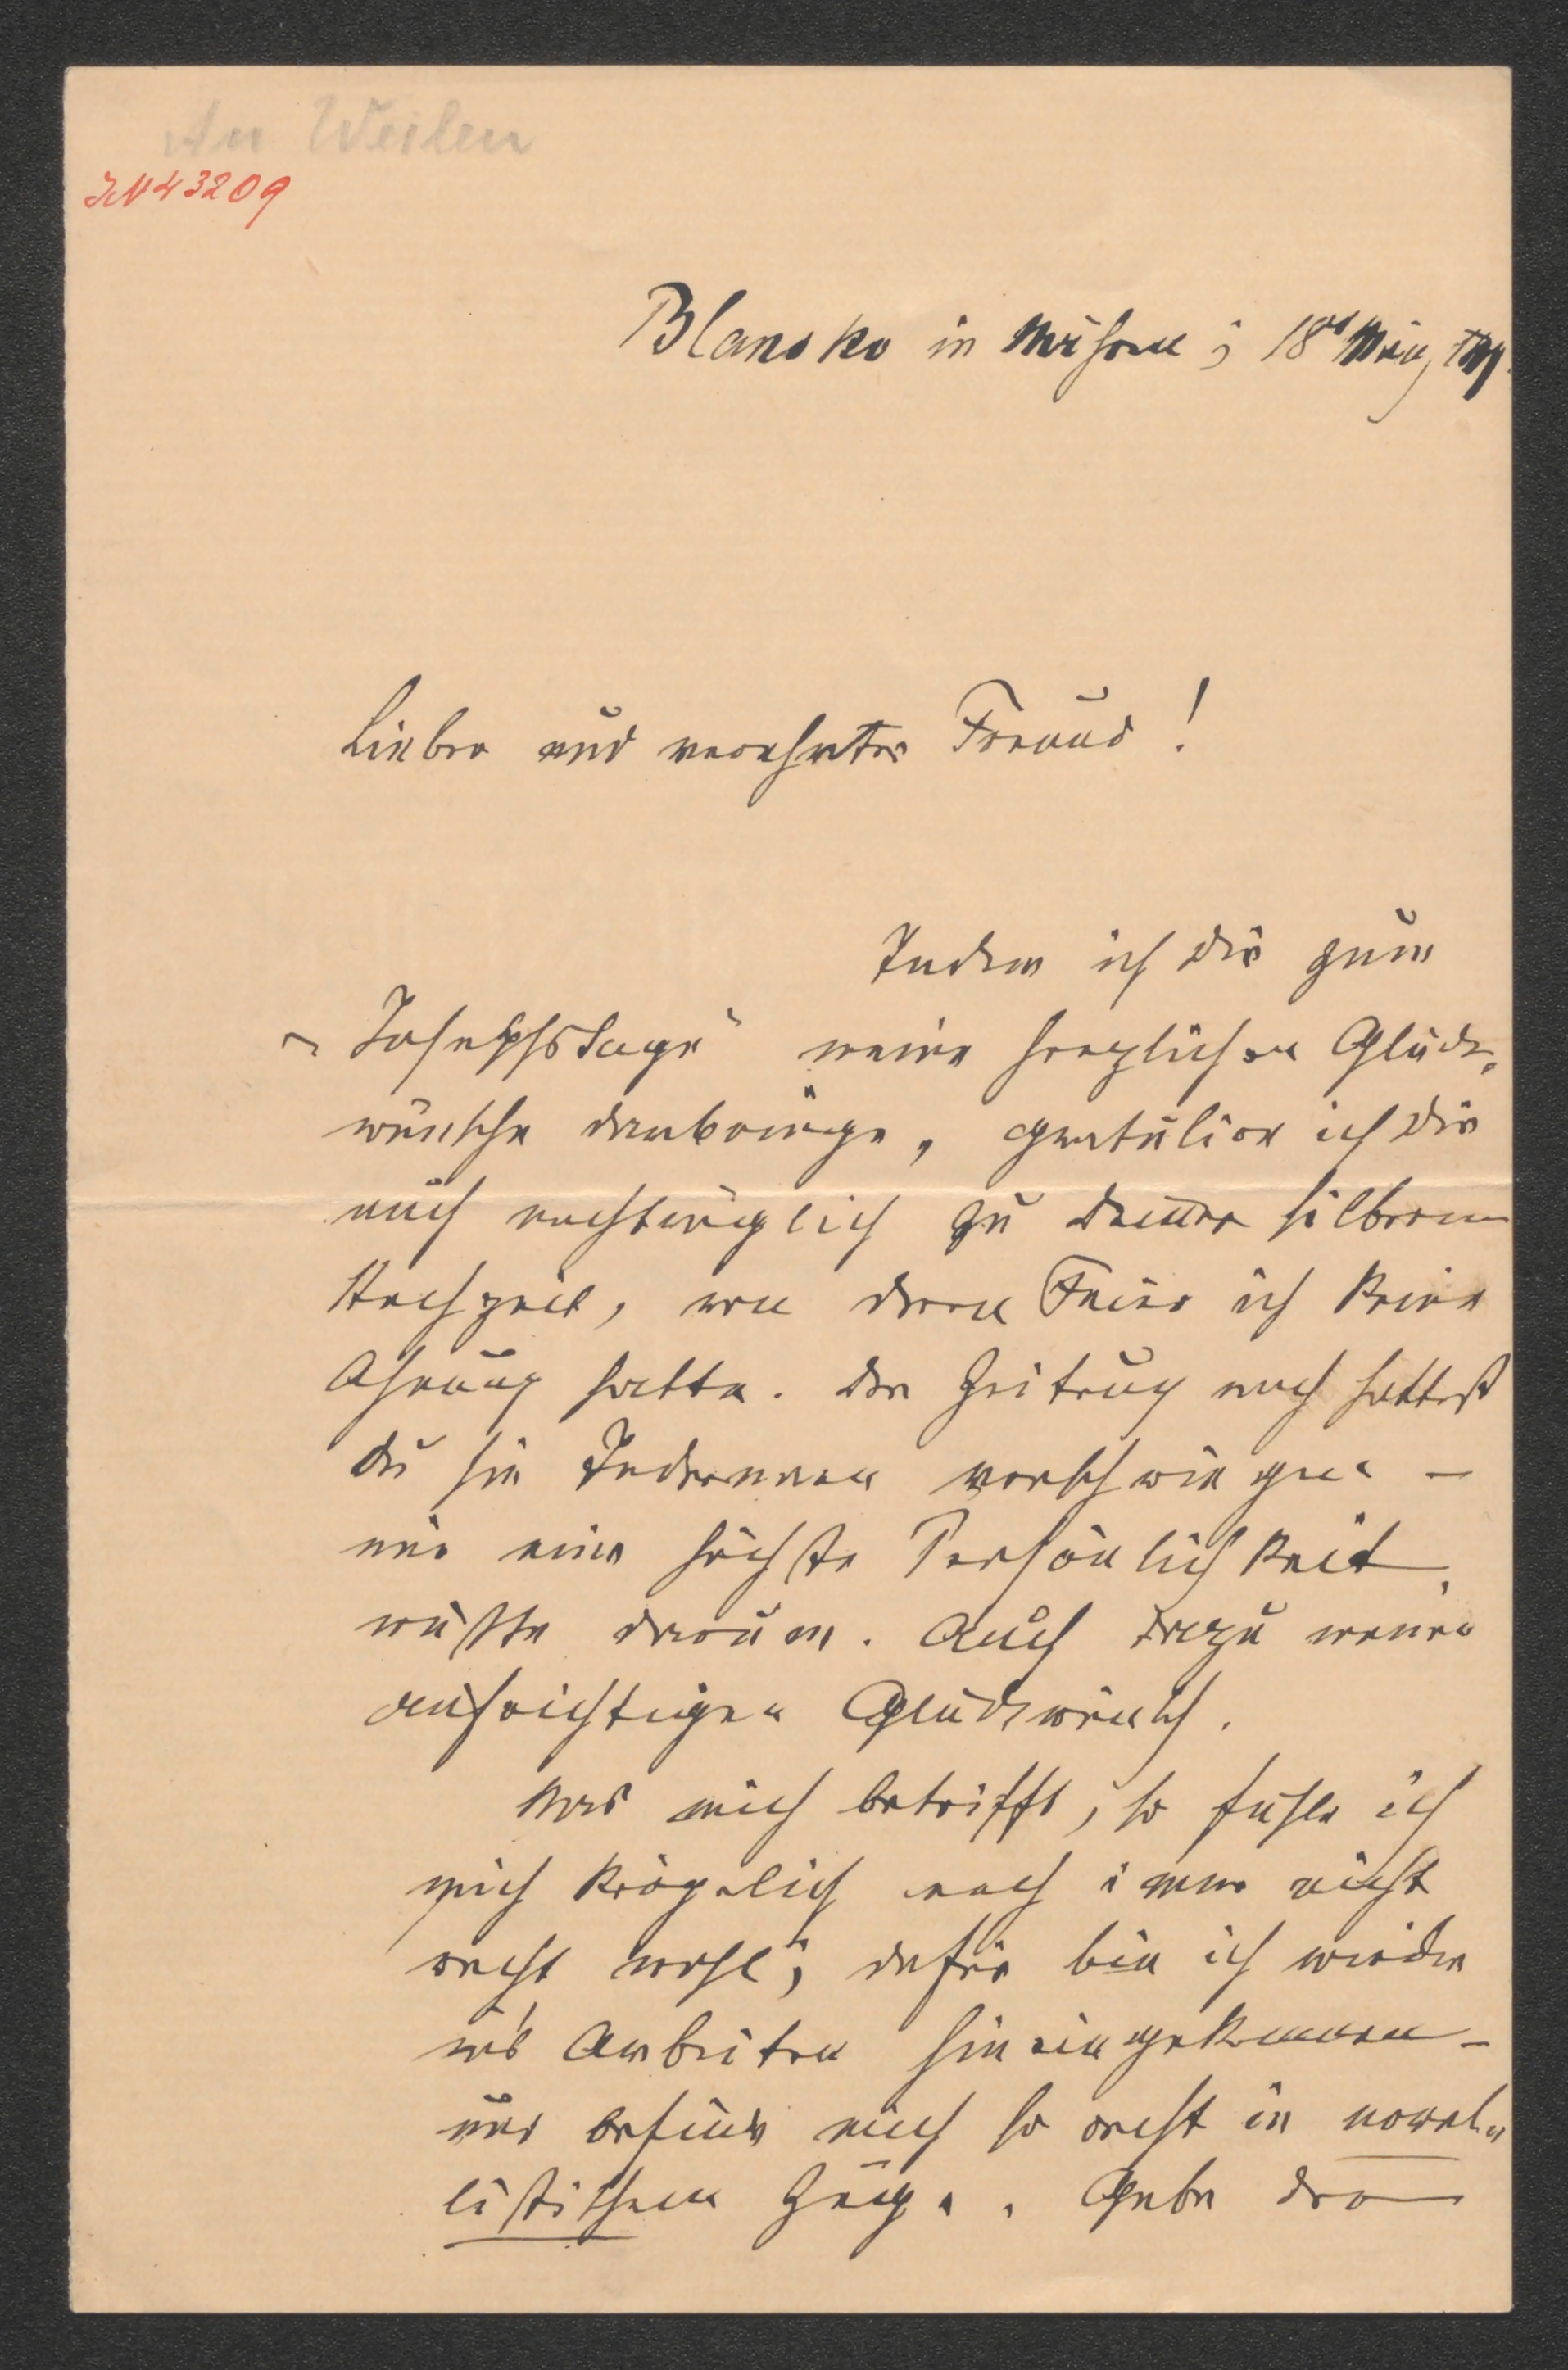 An Weilen
IN 43209
Blansko in Mähren, 18t März
Lieber und verehrter Freund!
Indem ich Dir zum
"Josephstage" meine herzlichen Glück-
wünsche darbringe, gratulire ich Dir
auch nachträglich zu Deiner silbernen
Hochzeit, von deren Feier ich keine
Ahnung hatte. Der Zeitung nach hattest
Du sie Jedermann verschwiegen –
nur eine höchste Persönlichkeit
wußte darum. Auch dazu meinen
aufrichtigen Glückwunsch.
Was mich betrifft, so fühle ich
mich körperlich noch immer nicht
recht wohl; dafür bin ich wieder
in's Arbeiten hineingekommen –
und befinde mich so recht in novel-
listischem Zuge. Gebe der